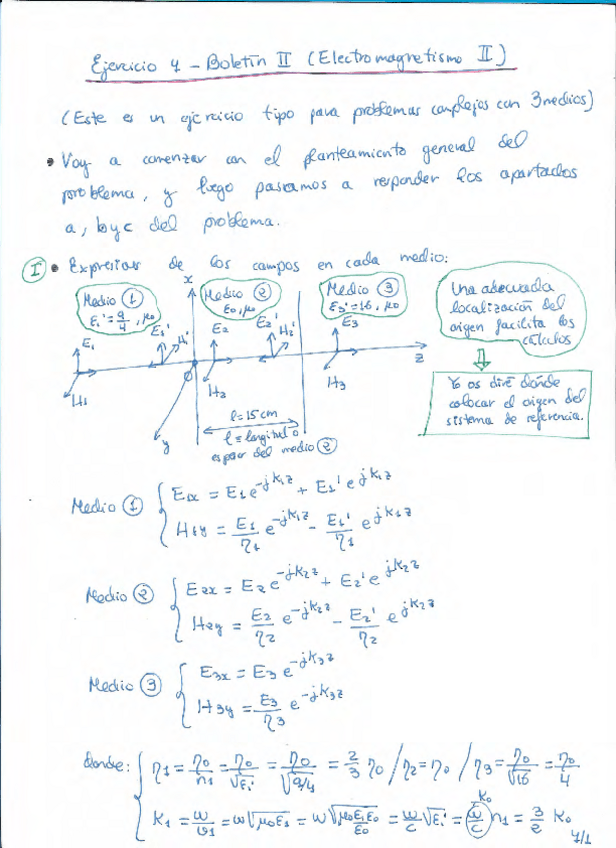 Ejercicio 4 - Boletín II (Electromagnetismo II)
(Este es un ejercicio tipo para problemas complejos con 3 medios)
• Voy a comenzar con el planteamiento general del
problema, y luego pasamos a responder los apartados
a, b y c del problema.
I • Expresiones de los campos en cada medio:
Medio 1
ε1' = 9/4, μ0
x
Medio 2
ε0, μ0
Medio 3
ε3' = 16, μ0
Una adecuada
localización del
origen facilita los
cálculos
E1 E1' H1' E2 E2' H2' E3
z
H1 O H2 H3
y
Yo os diré dónde
colocar el origen del
sistema de referencia.
l = 15 cm
l = longitud o
espesor del medio 2
Medio 1 { E1x = E1 e^-jK1z + E1' e^jK1z
H1y = E1/η1 e^-jK1z - E1'/η1 e^jK1z
Medio 2 { E2x = E2 e^-jK2z + E2' e^jK2z
H2y = E2/η2 e^-jK2z - E2'/η2 e^jK2z
Medio 3 { E3x = E3 e^-jK3z
H3y = E3/η3 e^-jK3z
donde: { η1 = η0/n1 = η0/√ε1' = η0/√9/4 = 2/3 η0 / η2 = η0 / η3 = η0/√16 = η0/4
K1 = ω/v1 = ω√μ0ε1 = ω√μ0ε1ε0/ε0 = ω/c √ε1' = ω/c n1 = 3/2 K0
K0
4/1